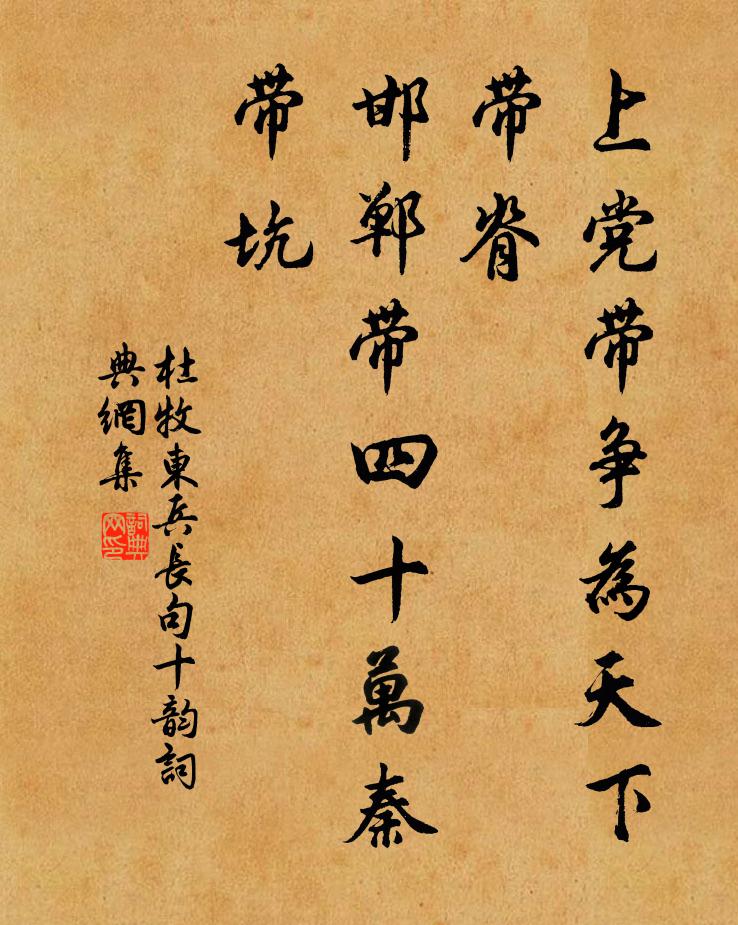 上党带争為天下
带脊
邯鄲带四十萬秦
带坑
杜牧東兵長句十韵詞
典網集
詞典
网印